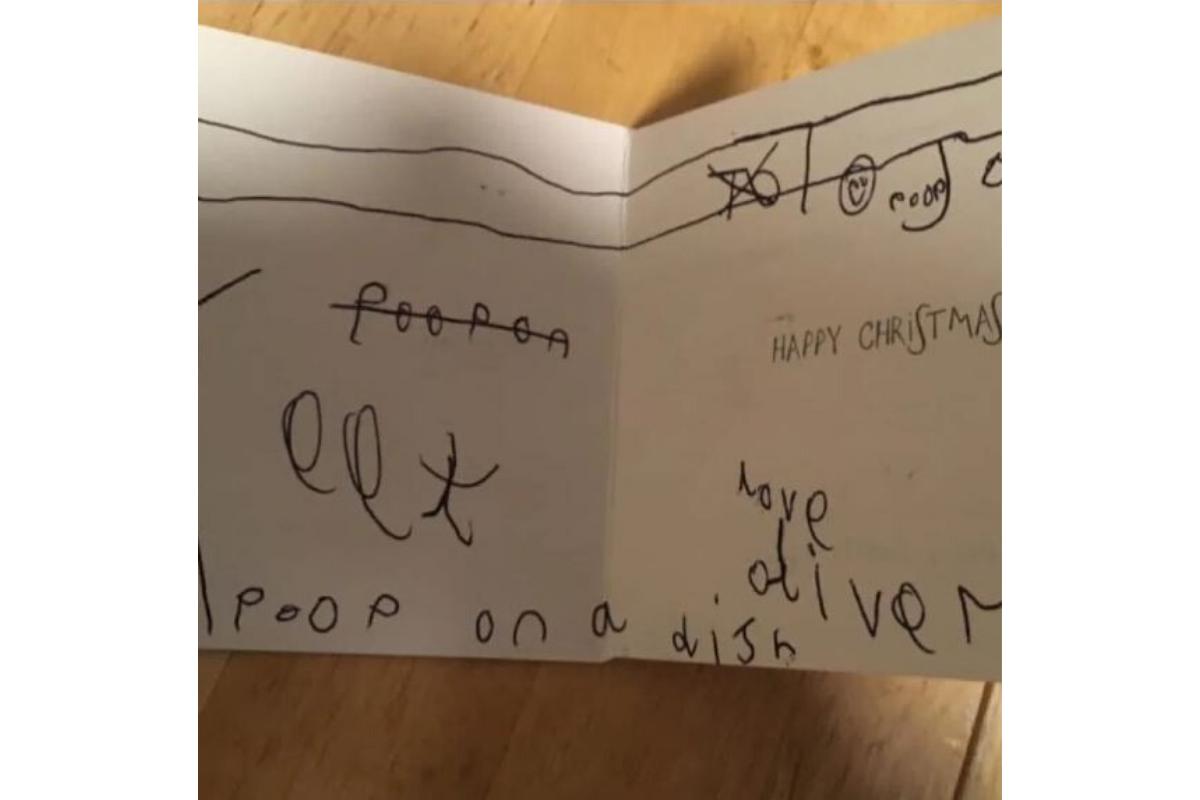 poop
poopon
HAPPY CHRISTMAS
love
oliver
poop on a dish